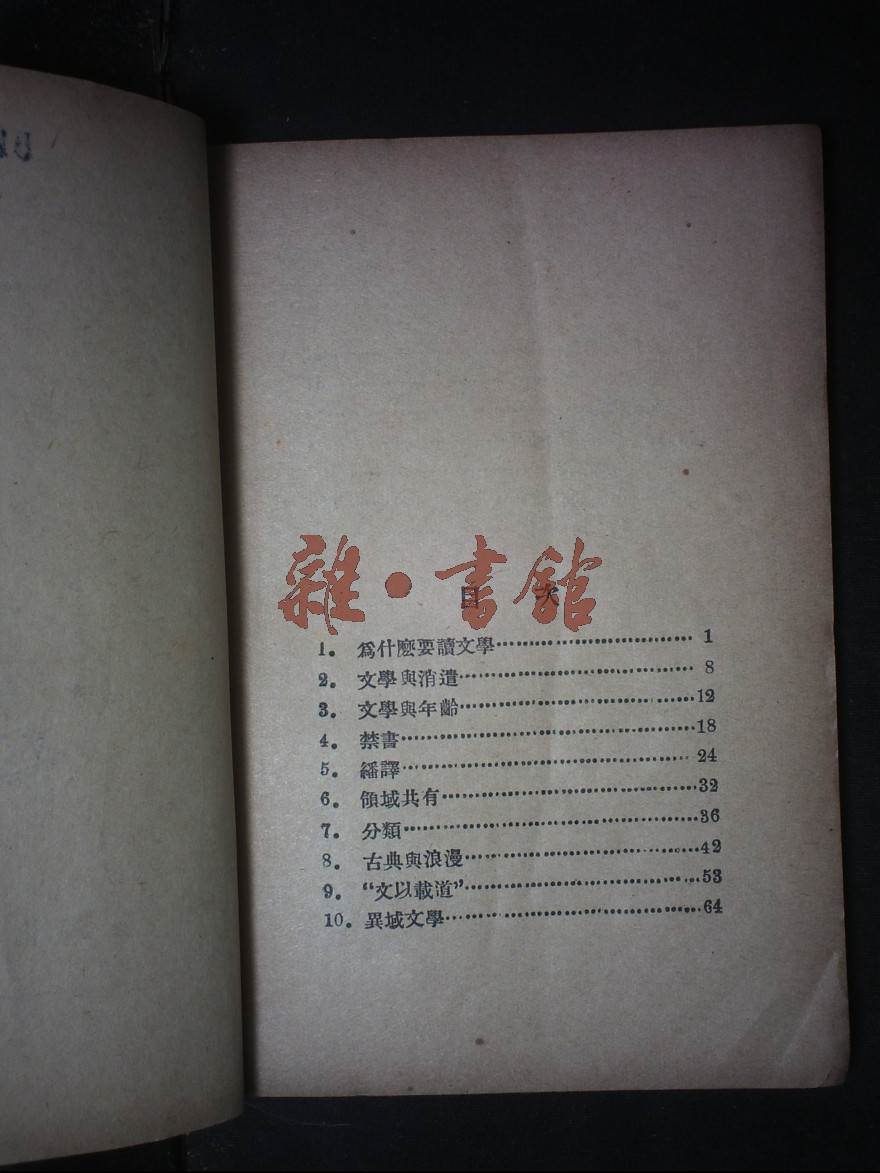 雜·書館
目 次
1. 爲什麽要讀文學……………………1
2. 文學與消遣……………………8
3. 文學與年齡……………………12
4. 禁書……………………18
5. 繙譯……………………24
6. 領域共有……………………32
7. 分類……………………36
8. 古典與浪漫……………………42
9. “文以載道”……………………53
10. 異域文學……………………64